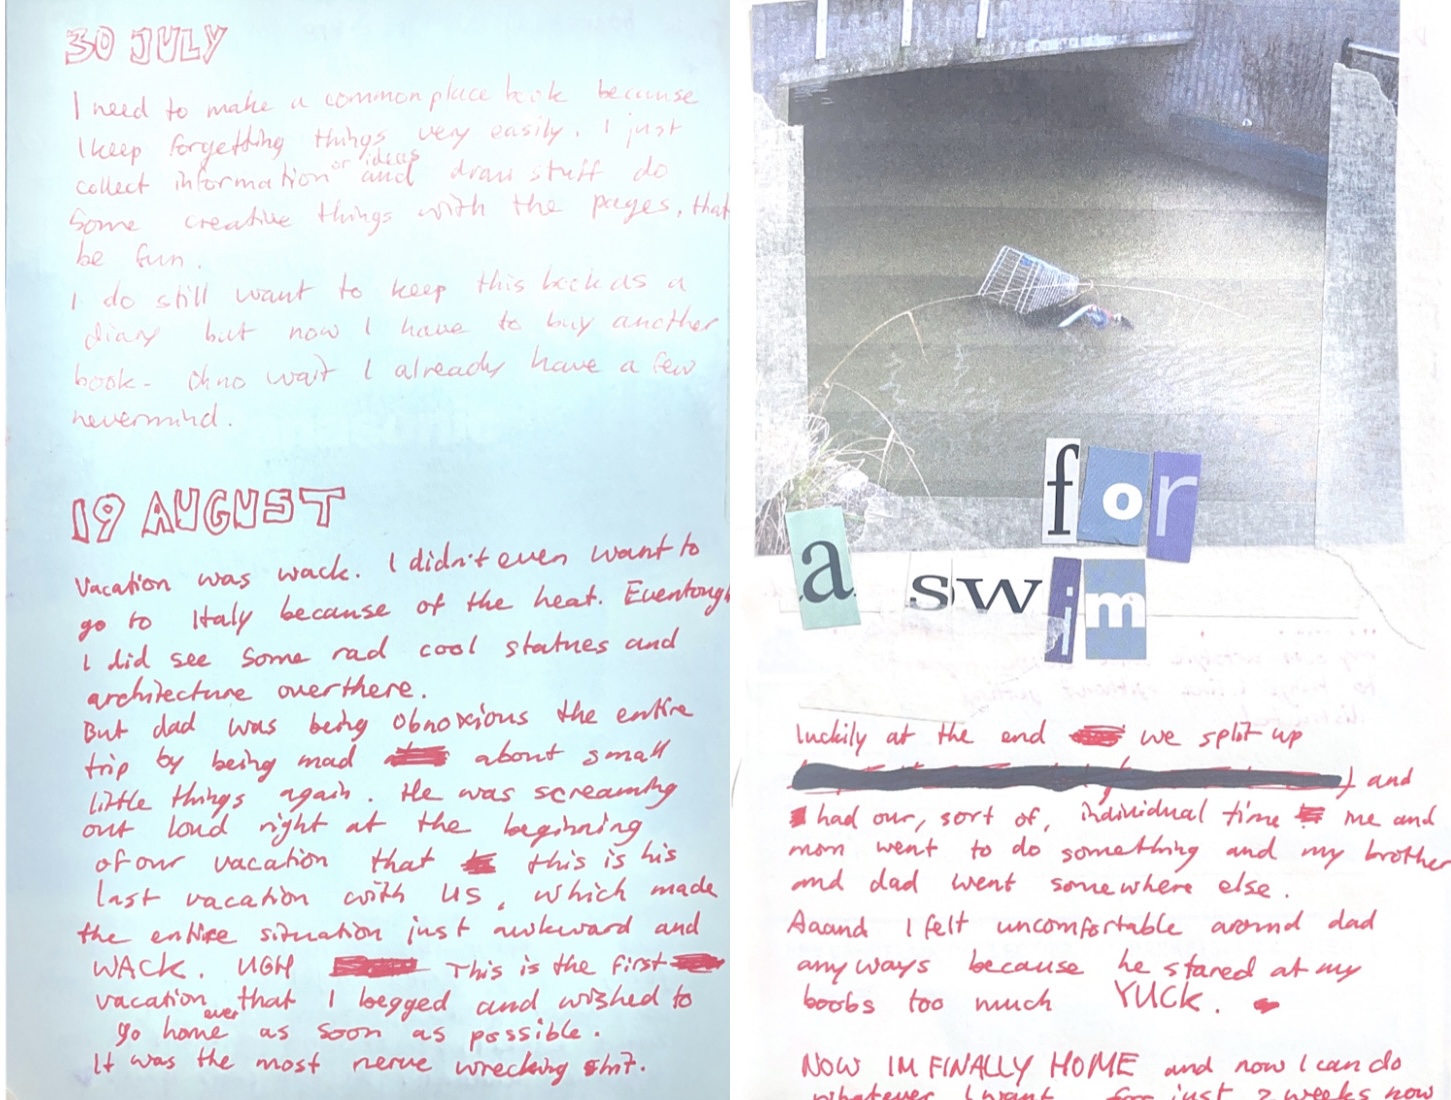 30 JULY
I need to make a commonplace book because
I keep forgetting things very easily. I just
collect information or ideas and draw stuff do
some creative things with the pages, that
be fun.
I do still want to keep this book as a
diary but now I have to buy another
book - oh no wait I already have a few
nevermind.
19 AUGUST
Vacation was wack. I didn't even want to
go to Italy because of the heat. Eventough
I did see some rad cool statues and
architecture overthere.
But dad was being obnoxious the entire
trip by being mad about small
little things again. He was screaming
out loud right at the beginning
of our vacation that this is his
last vacation with us, which made
the entire situation just awkward and
WACK. UGH This is the first
vacation ever that I begged and wished to
go home as soon as possible.
It was the most nerve wrecking shit.
for
a swim
luckily at the end we split up
) and
had our, sort of, individual time me and
mom went to do something and my brother
and dad went somewhere else.
Aaand I felt uncomfortable around dad
anyways because he stared at my
boobs too much YUCK.
NOW IM FINALLY HOME and now I can do
whatever I want for just 2 weeks now